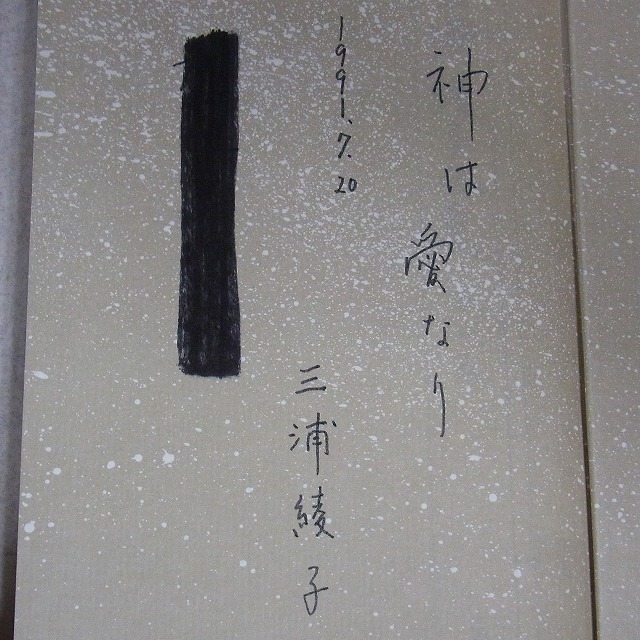 神は愛なり
1991.7.20
三浦綾子